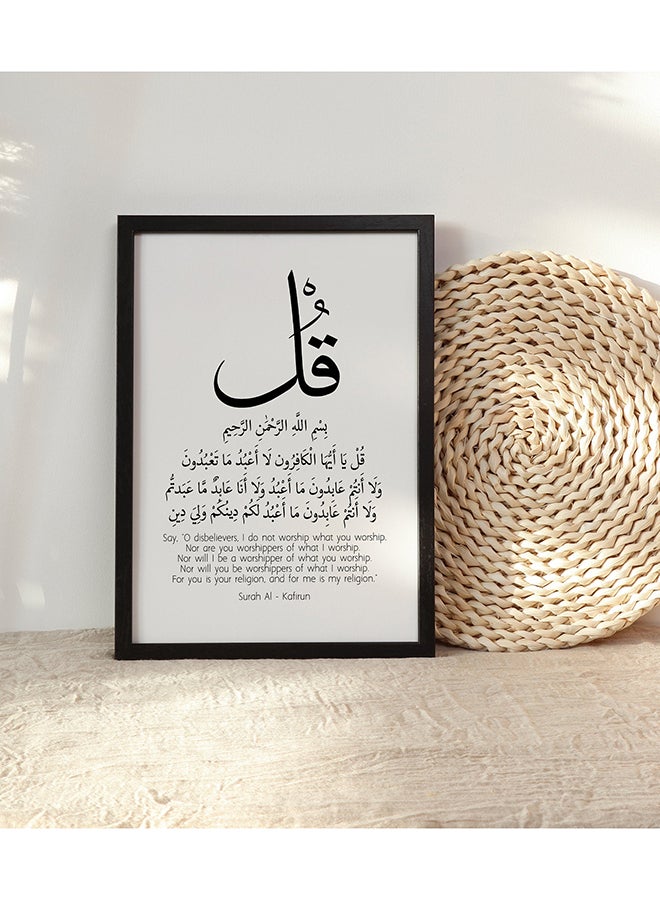 قُلْ
بِسْمِ اللَّهِ الرَّحْمَٰنِ الرَّحِيمِ
قُلْ يَا أَيُّهَا الْكَافِرُونَ لَا أَعْبُدُ مَا تَعْبُدُونَ
وَلَا أَنتُمْ عَابِدُونَ مَا أَعْبُدُ وَلَا أَنَا عَابِدٌ مَّا عَبَدتُّمْ
وَلَا أَنتُمْ عَابِدُونَ مَا أَعْبُدُ لَكُمْ دِينُكُمْ وَلِيَ دِينِ
Say, "O disbelievers, I do not worship what you worship.
Nor are you worshippers of what I worship.
Nor will I be a worshipper of what you worship.
Nor will you be worshippers of what I worship.
For you is your religion, and for me is my religion."
Surah Al - Kafirun